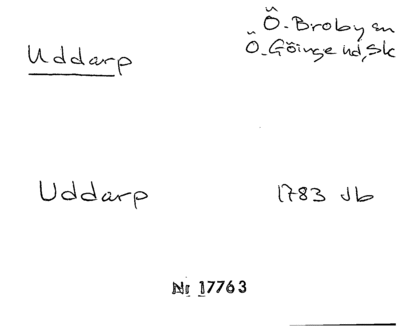 Uddarp
Ö. Broby sn
Ö. Göinge hd, Sk
Uddarp 1783 Jb
Nr 17763